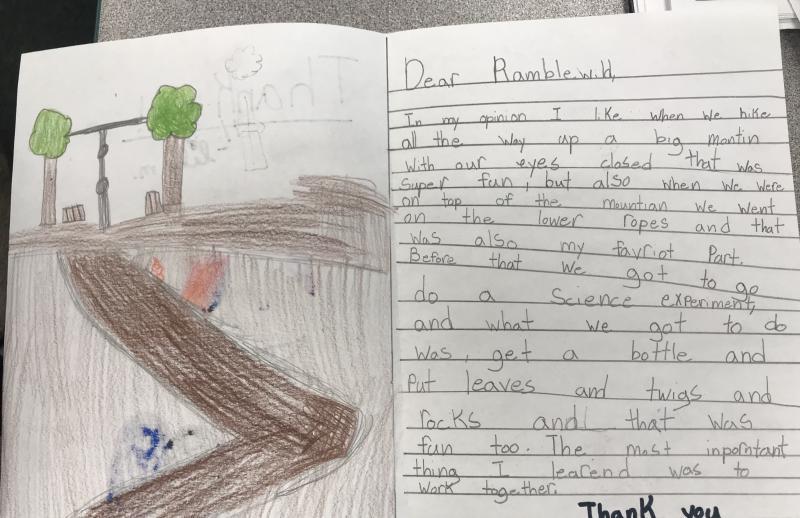 Thank
Dear Ramblewild,
In my opinion I like when we hike
all the way up a big montin
with our eyes closed that was
super fun, but also when we were
on top of the mountian we went
on the lower ropes and that
was also my favriot Part.
Before that we got to go
do a science experiment,
and what we got to do
was, get a bottle and
Put leaves and twigs and
rocks and that was
fun too. The most inporntant
thing I learend was to
work together.
Thank you